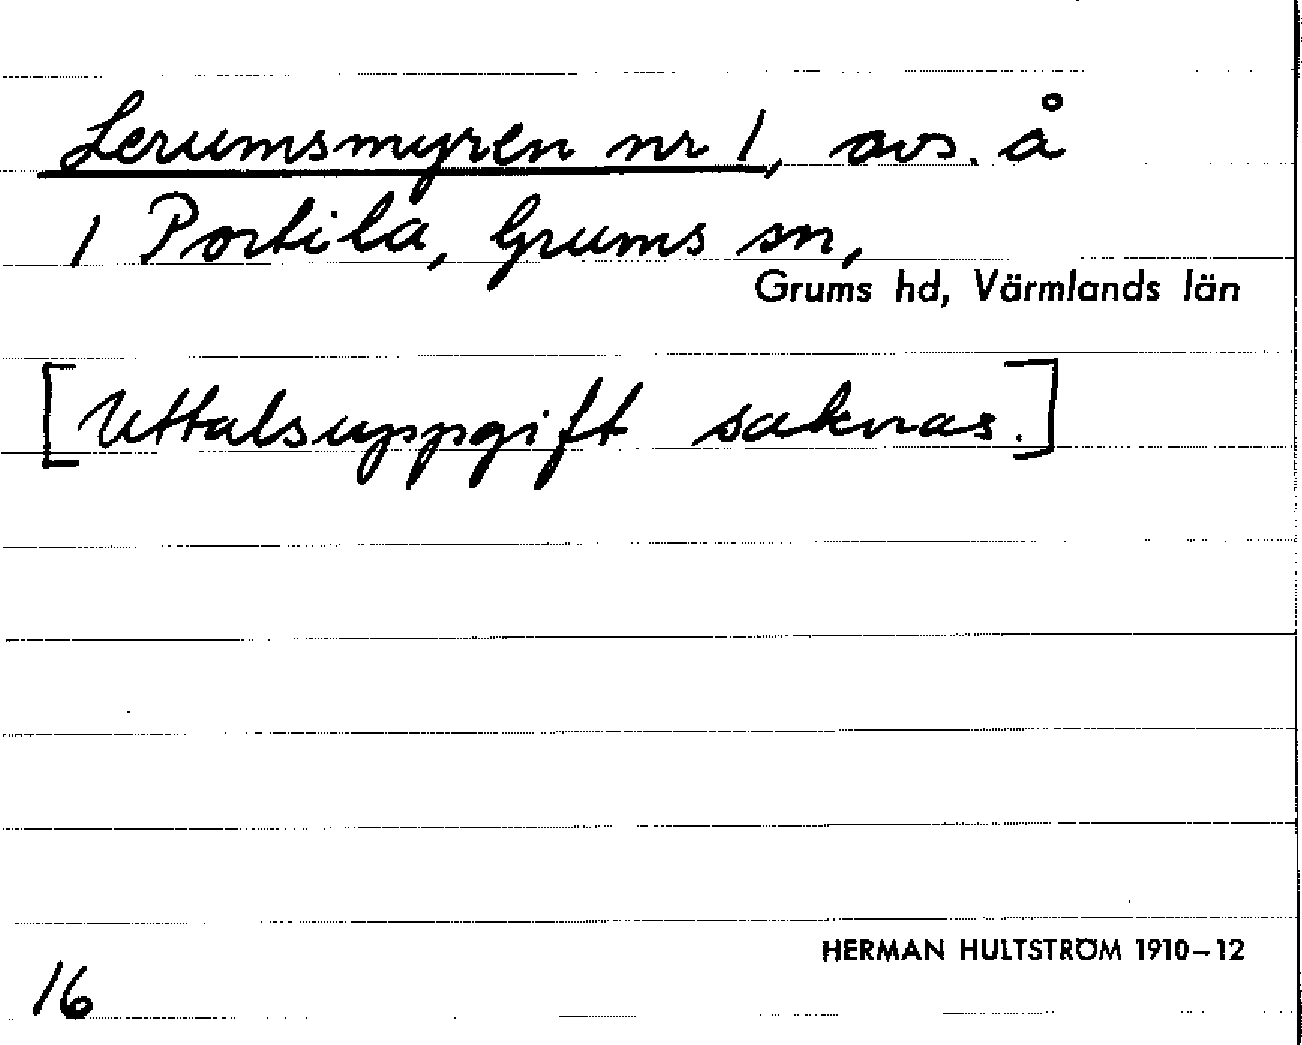 Lerumsmyren nr 1, avs. å
1 Portila, Grums sn,
Grums hd, Värmlands län
[Uttalsuppgift saknas.]
HERMAN HULTSTRÖM 1910–12
16